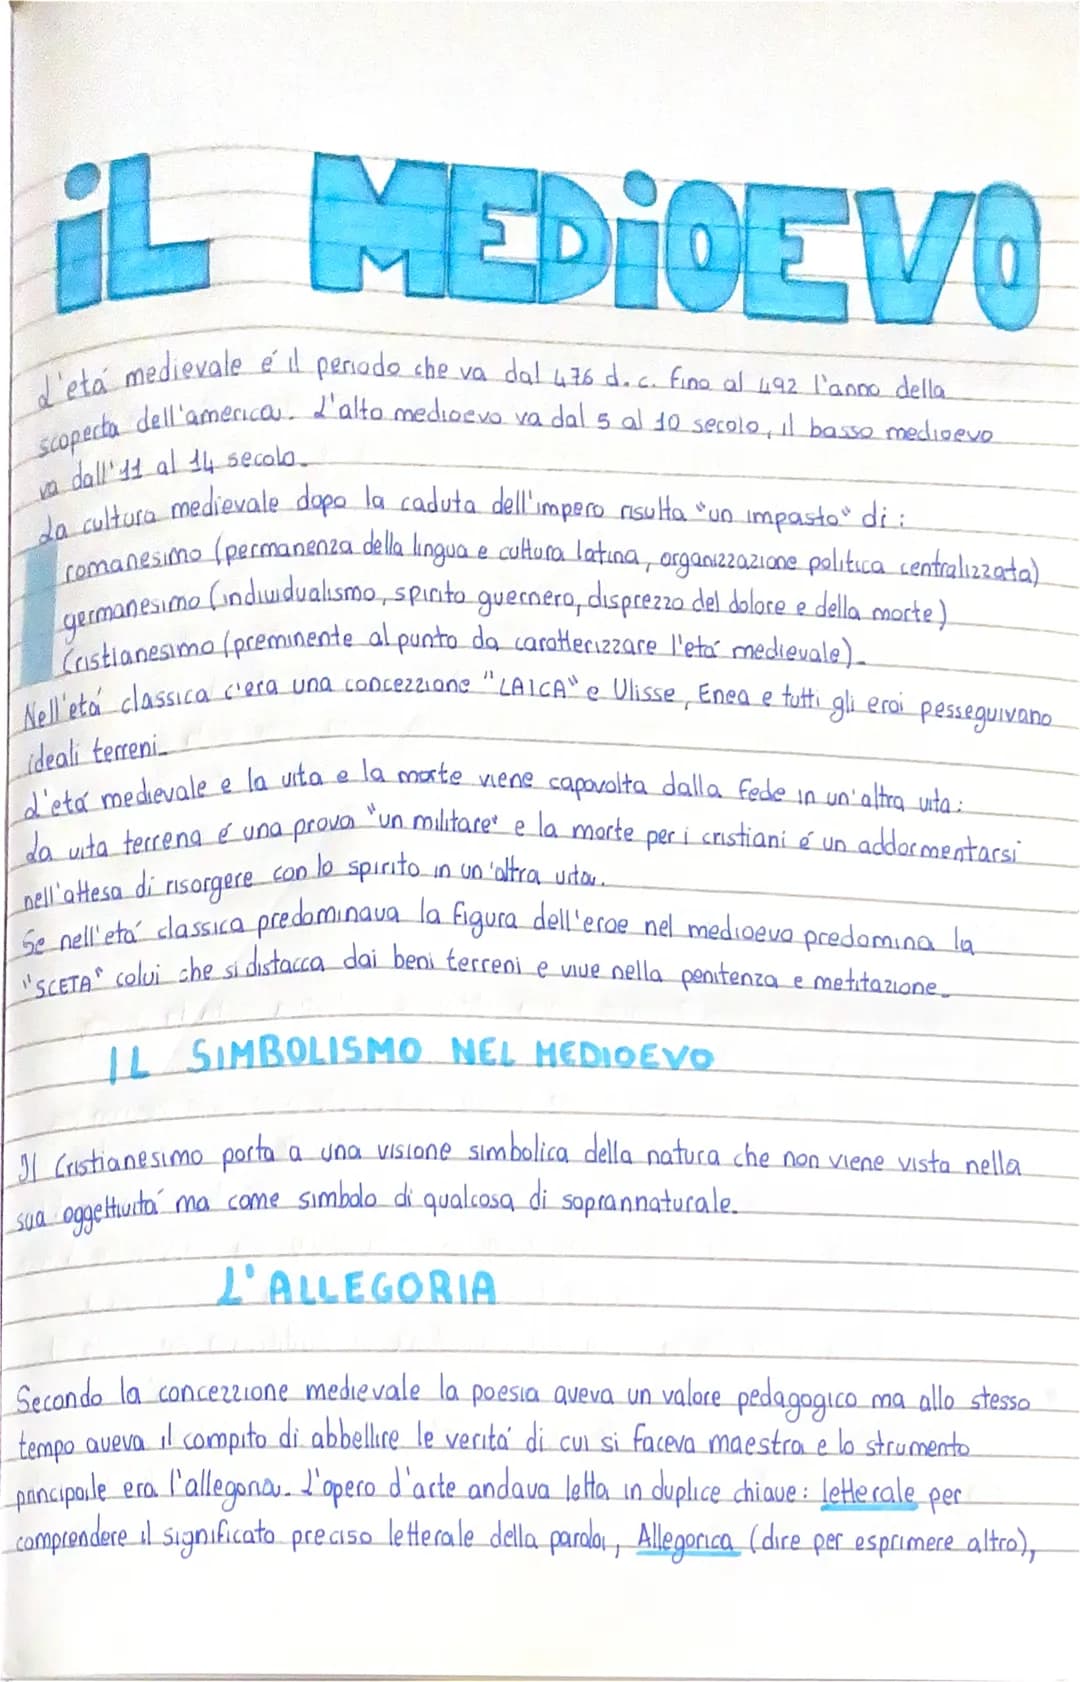 iL MEDiOEVO
L'etá medievale é il periodo che va dal 476 d.c. fino al 492 l'anno della
scoperta dell'america. L'alto medioevo va dal 5 al 10 secolo, il basso medioevo
va dall'11 al 14 secolo.
La cultura medievale dopo la caduta dell'impero risulta "un impasto" di :
romanesimo (permanenza della lingua e cultura latina, organizzazione politica centralizzata)
germanesimo (individualismo, spirito guerriero, disprezzo del dolore e della morte)
Cristianesimo (preminente al punto da caratterizzare l'etá medievale).
Nell'etá classica c'era una concezzione "LAICA" e Ulisse, Enea e tutti gli eroi pesseguivano
ideali terreni.
L'etá medievale e la vita e la morte viene capovolta dalla fede in un'altra vita:
La vita terrena é una prova "un militare" e la morte per i cristiani é un addormentarsi
nell'attesa di risorgere con lo spirito in un'altra vita.
Se nell'etá classica predominava la figura dell'eroe nel medioevo predomina la
"SCETA" colui che si distacca dai beni terreni e vive nella penitenza e metitazione.
IL SIMBOLISMO NEL MEDIOEVO
Il Cristianesimo porta a una visione simbolica della natura che non viene vista nella
sua oggettivitá ma come simbolo di qualcosa di soprannaturale.
L'ALLEGORIA
Secondo la concezzione medievale la poesia aveva un valore pedagogico ma allo stesso
tempo aveva il compito di abbellire le veritá di cui si faceva maestra e lo strumento
principale era l'allegoria. L'opero d'arte andava letta in duplice chiave: letterale per
comprendere il significato preciso letterale della parola, Allegorica (dire per esprimere altro),